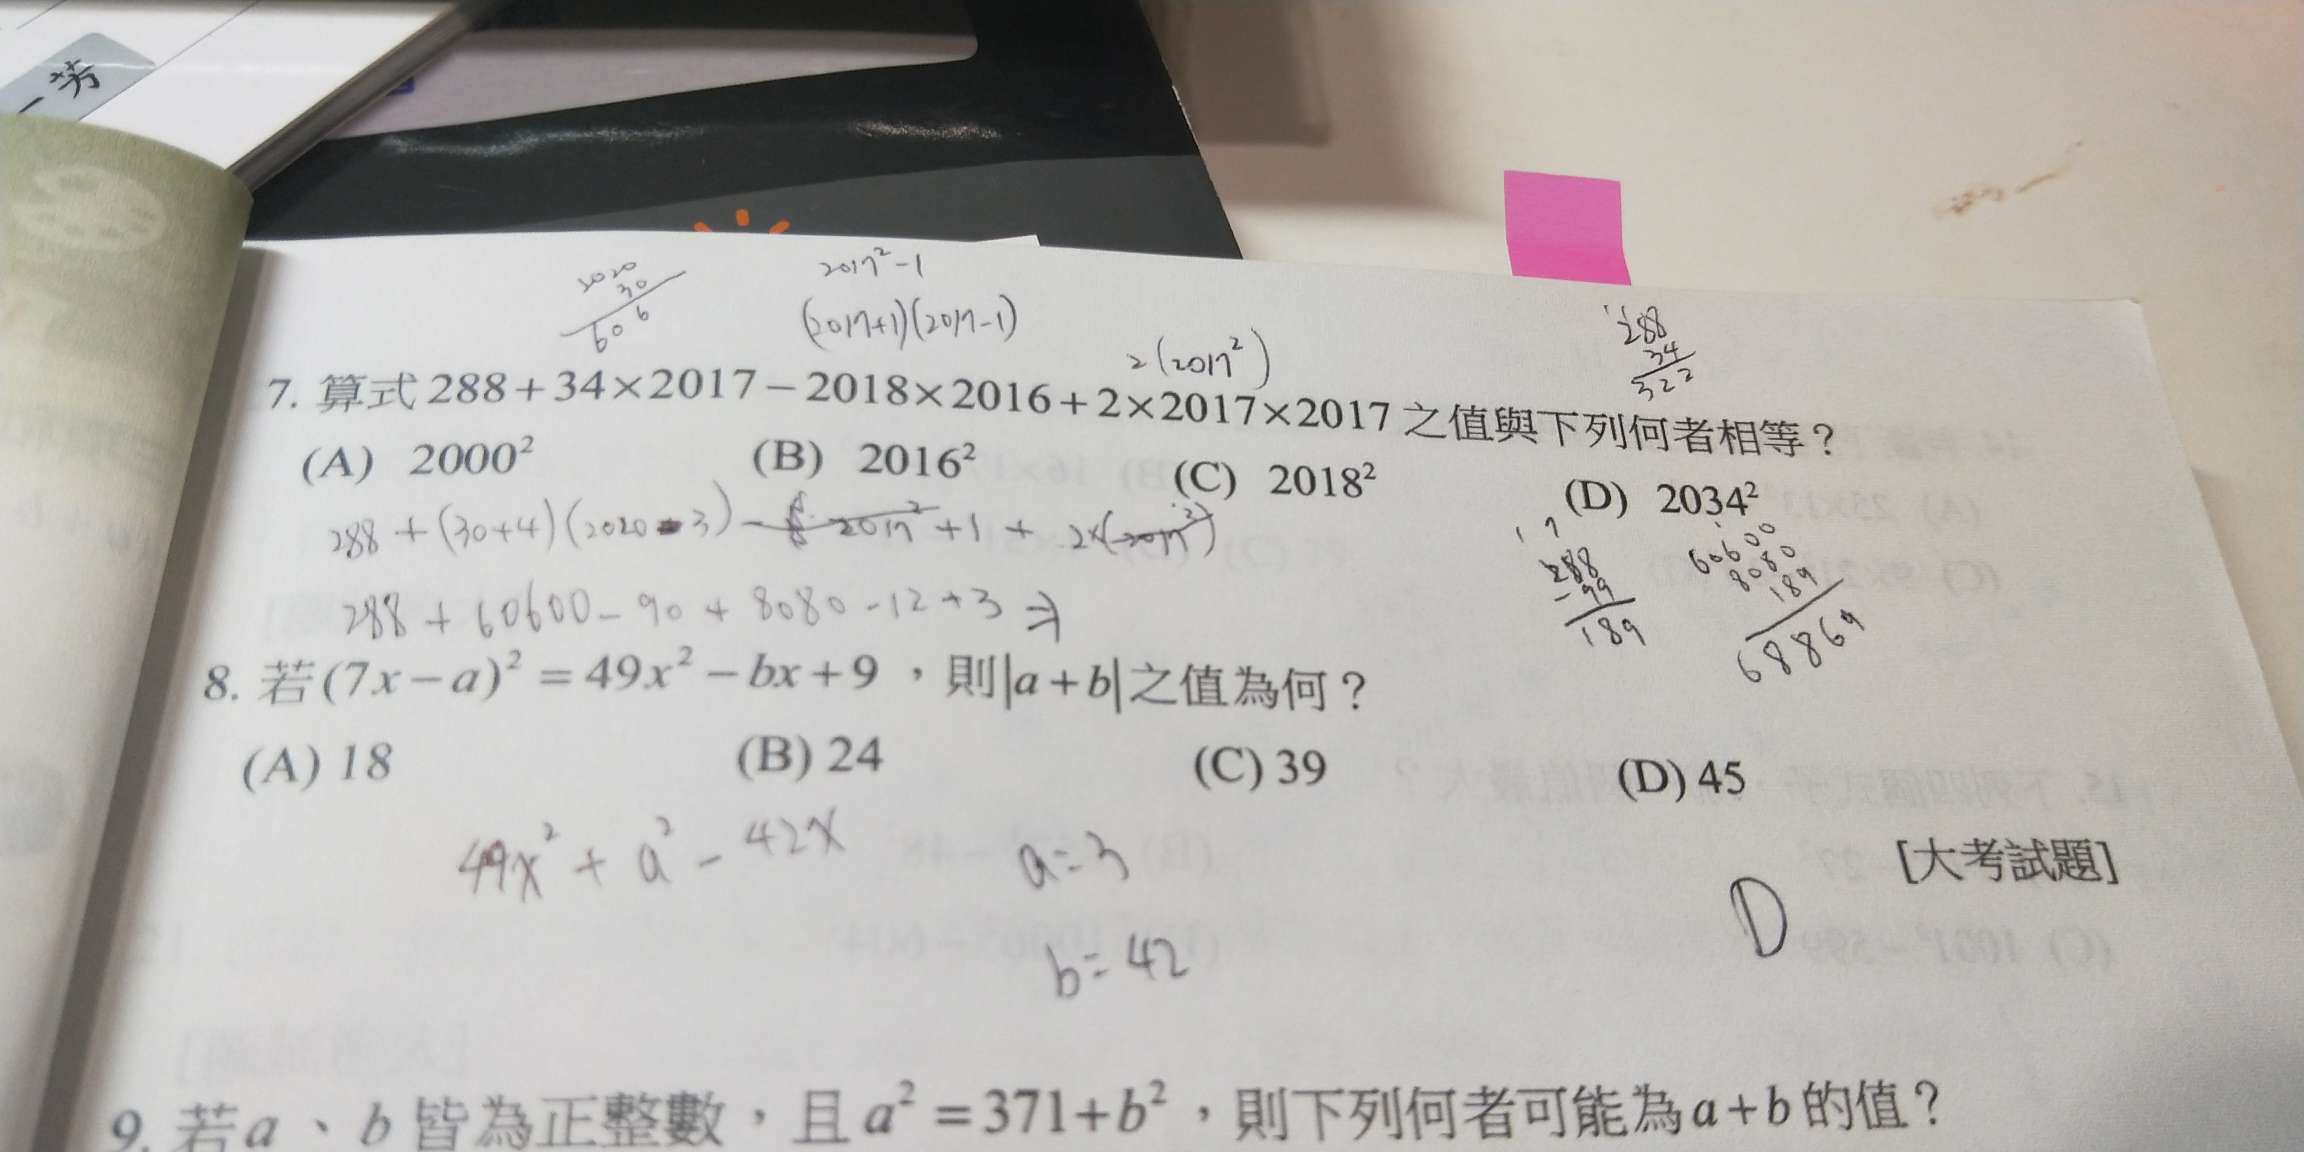 一芳
2020
30
606
2017²-1
(2017+1)(2017-1)
2(2017²)
288
34
322
7. 算式 288+34×2017-2018×2016+2×2017×2017 之值與下列何者相等？
(A) 2000² (B) 2016² (C) 2018² (D) 2034²
288 + (30+4)(2020-3) - 2017² + 1 + 2×(2017²)
288 + 60600 - 90 + 8080 - 12 + 3 ⇒
288
-99
189
60600
8080
189
68869
8. 若(7x-a)²=49x²-bx+9，則|a+b|之值為何？
(A) 18 (B) 24 (C) 39 (D) 45
[大考試題]
49x² + a² - 42x
a=3
b=42
D
9. 若a、b皆為正整數，且a²=371+b²，則下列何者可能為a+b的值？